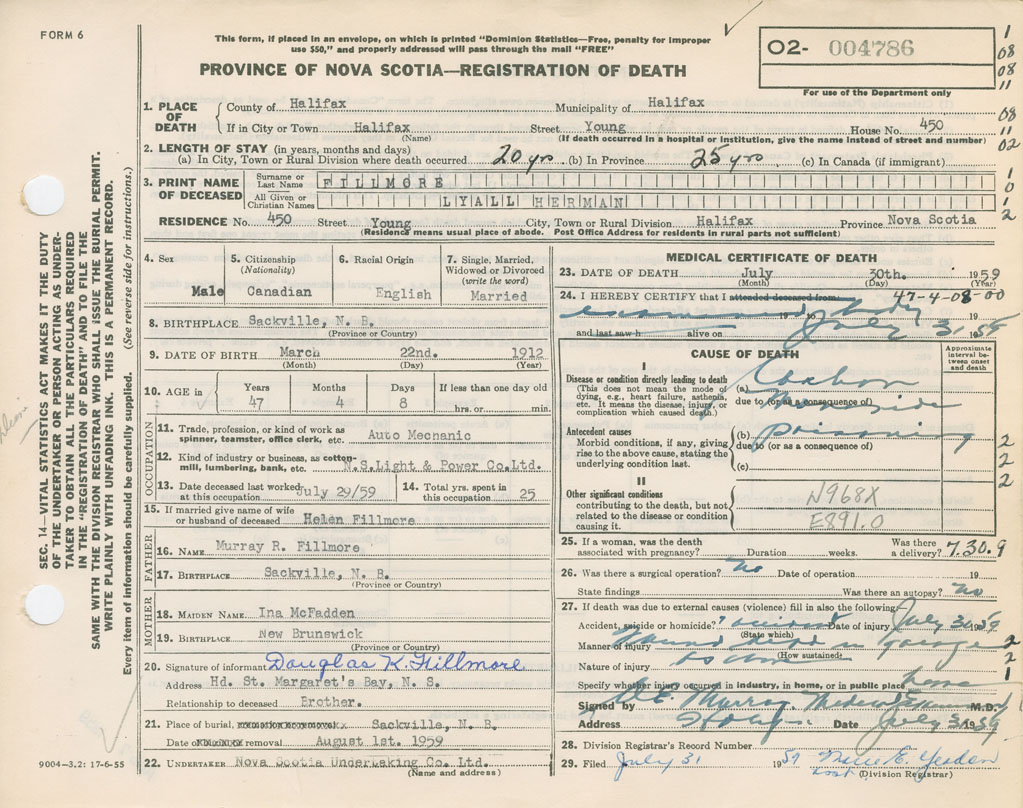 FORM 6
This form, if placed in an envelope, on which is printed "Dominion Statistics—Free, penalty for improper
use $50," and properly addressed will pass through the mail "FREE"
PROVINCE OF NOVA SCOTIA—REGISTRATION OF DEATH
O2- 004786
For use of the Department only
1
08
08
11
08
11
02
1
0
1
2
SEC. 14—VITAL STATISTICS ACT MAKES IT THE DUTY
OF THE UNDERTAKER OR PERSON ACTING AS UNDER-
TAKER TO OBTAIN ALL THE PARTICULARS REQUIRED
IN THE "REGISTRATION OF DEATH" AND TO FILE THE
SAME WITH THE DIVISION REGISTRAR WHO SHALL ISSUE THE BURIAL PERMIT.
WRITE PLAINLY WITH UNFADING INK. THIS IS A PERMANENT RECORD.
Every item of information should be carefully supplied. (See reverse side for instructions.)
1. PLACE OF DEATH
County of Halifax Municipality of Halifax
If in City or Town Halifax Street Young House No. 450
(Name) (If death occurred in a hospital or institution, give the name instead of street and number)
2. LENGTH OF STAY (in years, months and days)
(a) In City, Town or Rural Division where death occurred 20 yrs (b) In Province 25 yrs (c) In Canada (if immigrant)
3. PRINT NAME OF DECEASED
Surname or Last Name FILLMORE
All Given or Christian Names LYALL HERMAN
RESIDENCE No. 450 Street Young City, Town or Rural Division Halifax Province Nova Scotia
(Residence means usual place of abode. Post Office Address for residents in rural parts not sufficient)
4. Sex
Male
5. Citizenship
(Nationality)
Canadian
6. Racial Origin
English
7. Single, Married,
Widowed or Divorced
(write the word)
Married
8. BIRTHPLACE Sackville, N. B.
(Province or Country)
9. DATE OF BIRTH March 22nd. 1912
(Month) (Day) (Year)
10. AGE in
Years Months Days If less than one day old
47 4 8 hrs. or min.
OCCUPATION
11. Trade, profession, or kind of work as
spinner, teamster, office clerk, etc. Auto Mechanic
12. Kind of industry or business, as cotton-
mill, lumbering, bank, etc. N.S.Light & Power Co.Ltd.
13. Date deceased last worked
at this occupation July 29/59
14. Total yrs. spent in
this occupation 25
15. If married give name of wife
or husband of deceased Helen Fillmore
FATHER
16. NAME Murray R. Fillmore
17. BIRTHPLACE Sackville, N. B.
(Province or Country)
MOTHER
18. MAIDEN NAME Ina McFadden
19. BIRTHPLACE New Brunswick
(Province or Country)
20. Signature of informant Douglas K. Fillmore
Address Hd. St. Margaret's Bay, N. S.
Relationship to deceased Brother.
21. Place of burial, Sackville, N. B.
Date of removal August 1st. 1959
22. UNDERTAKER Nova Scotia Undertaking Co. Ltd.
(Name and address)
9004—3.2: 17-6-55
MEDICAL CERTIFICATE OF DEATH
23. DATE OF DEATH July 30th. 1959
(Month) (Day) (Year)
24. I HEREBY CERTIFY that I attended deceased from: 47-4-08-00
examined body
19 to July 31 1959
and last saw h alive on
CAUSE OF DEATH
Approximate
interval be-
tween onset
and death
I
Disease or condition directly leading to death
(This does not mean the mode of
dying, e.g., heart failure, asthenia,
etc. It means the disease, injury, or
complication which caused death.)
(a) Carbon
due to (or as a consequence of)
Monoxide
Antecedent causes
Morbid conditions, if any, giving
rise to the above cause, stating the
underlying condition last.
(b) poisoning
due to (or as a consequence of)
(c)
2
2
2
II
Other significant conditions
contributing to the death, but not
related to the disease or condition
causing it.
N968X
E891.0
25. If a woman, was the death
associated with pregnancy? Duration weeks.
Was there
a delivery? 7.30.9
26. Was there a surgical operation? No Date of operation 19
State findings Was there an autopsy? No
27. If death was due to external causes (violence) fill in also the following:
Accident, suicide or homicide? accident Date of injury July 30 1959
(State which)
Manner of injury found dead in garage
(How sustained)
Nature of injury as above
Specify whether injury occurred in industry, in home, or in public place home
2
2
1
Signed by Murray M.D.
Address Date July 31 1959
28. Division Registrar's Record Number
29. Filed July 31 1959
(Division Registrar)